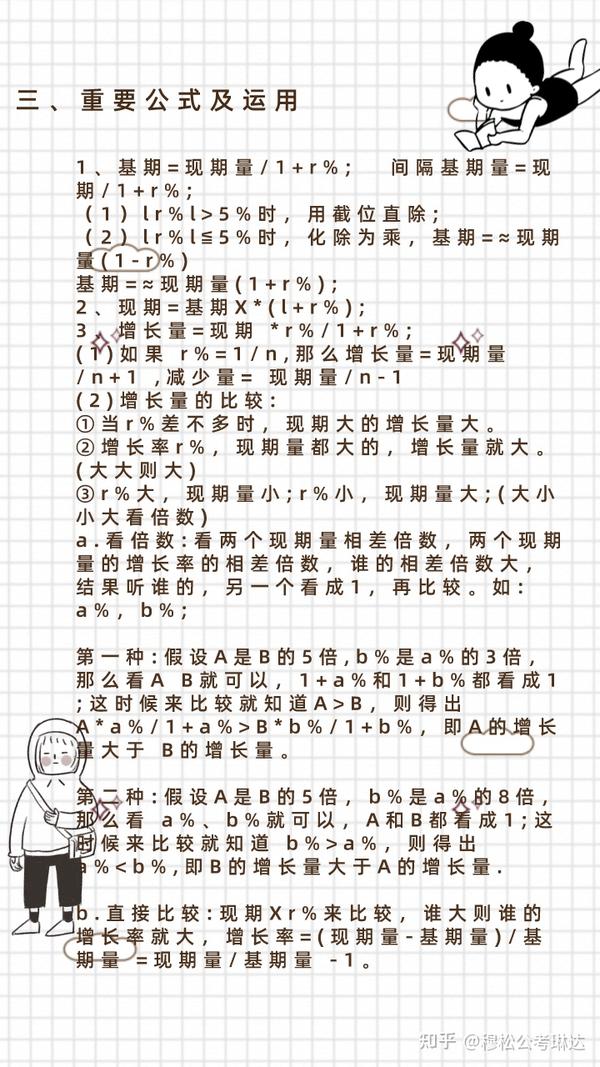 三、重要公式及运用
1、基期=现期量/1+r%;　间隔基期量=现
期/1+r%;
(1) lr%l>5%时，用截位直除;
(2) lr%l≦5%时，化除为乘，基期=≈现期
量(1-r%)
基期=≈现期量(1+r%);
2、现期=基期X*(l+r%);
3、增长量=现期 *r%/1+r%;
(1)如果 r%=1/n,那么增长量=现期量
/n+1 ,减少量= 现期量/n-1
(2)增长量的比较:
①当r%差不多时，现期大的增长量大。
②增长率r%，现期量都大的，增长量就大。
(大大则大)
③r%大，现期量小;r%小，现期量大;(大小
小大看倍数)
a.看倍数:看两个现期量相差倍数，两个现期
量的增长率的相差倍数，谁的相差倍数大，
结果听谁的，另一个看成1，再比较。如:
a%，b%;
第一种:假设A是B的5倍,b%是a%的3倍，
那么看A B就可以，1+a%和1+b%都看成1
;这时候来比较就知道A>B，则得出
A*a%/1+a%>B*b%/1+b%，即A的增长
量大于 B的增长量。
第二种:假设A是B的5倍，b%是a%的8倍，
那么看 a%、b%就可以，A和B都看成1;这
时候来比较就知道 b%>a%，则得出
a%<b%,即B的增长量大于A的增长量.
b.直接比较:现期Xr%来比较，谁大则谁的
增长率就大，增长率=(现期量-基期量)/基
期量 =现期量/基期量 -1。
知乎 @穆松公考琳达